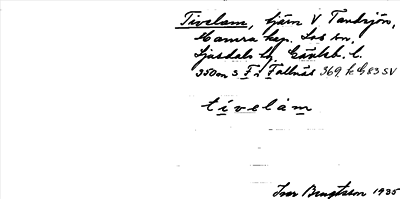 Tivelam, tjärn V Tandsjön,
Hamra kap. Los sn,
Ljusdals tg. Gävleb. l.
350m S F i Fallnäs 369 k G 83 SV
tivelàm
Ivar Bengtsson 1935